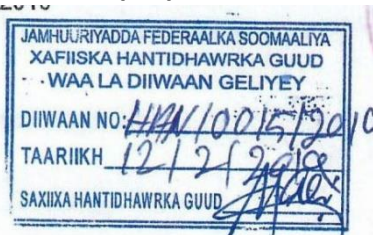 JAMHUURIYADDA FEDERAALKA SOOMAALIYA
XAFIISKA HANTIDHAWRKA GUUD
WAA LA DIIWAAN GELIYEY
DIIWAAN NO: HAN/0015/2010
TAARIIKH 12/2/2010
SAXIIXA HANTIDHAWRKA GUUD